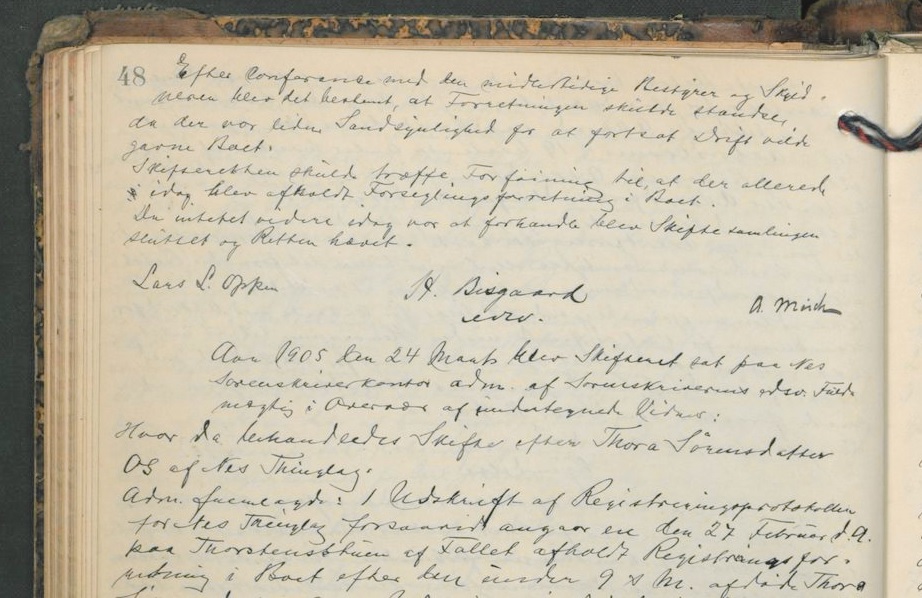 48
Efter Conferance med den midlertidige Bestyrer og Skyld-
neren blev det bestemt, at Forretningen skulde standse,
da der var liden Sandsynlighed for at fortsat Drift vilde
gavne Boet.
Skifteretten skulde træffe Forføining til, at der allerede
idag blev afholdt Forseglingsforretning i Boet.
Da intet videre idag var at forhandle blev Skiftesamlingen
sluttet og Retten hævet.
Lars L. Opken H. Bisgaard A. Minch
edsv.
Aar 1905 den 24 Marts blev Skifteret sat paa Nes
Sorenskriverkontor adm. af Sorenskriverens edsv. Fuld-
mægtig i Overvær af undertegnede Vidner:
Hvor da behandledes Skifte efter Thora Sörensdatter
Os af Nes Thinglag.
Adm. fremlagde: 1 Udskrift af Registreringsprotokollen
for Nes Thinglag forsaavid angaar en den 27 Februar d.A.
paa af Fallet afholdt Registrerings for-
retning i Boet efter den under 9 s. M. afdøde Thora